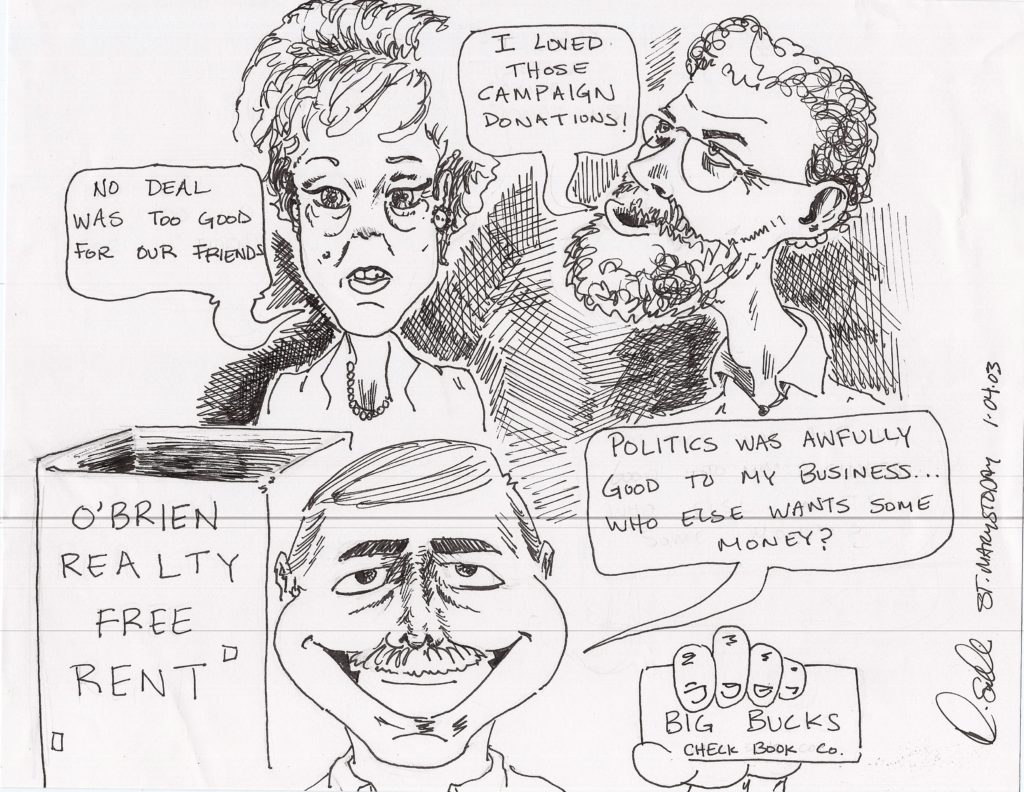 I LOVED
THOSE
CAMPAIGN
DONATIONS!
NO DEAL
WAS TOO GOOD
FOR OUR FRIENDS
POLITICS WAS AWFULLY
GOOD TO MY BUSINESS...
WHO ELSE WANTS SOME
MONEY?
O'BRIEN
REALTY
FREE
RENT
BIG BUCKS
CHECK BOOK CO.
ST. MARYS TODAY 1.04.03